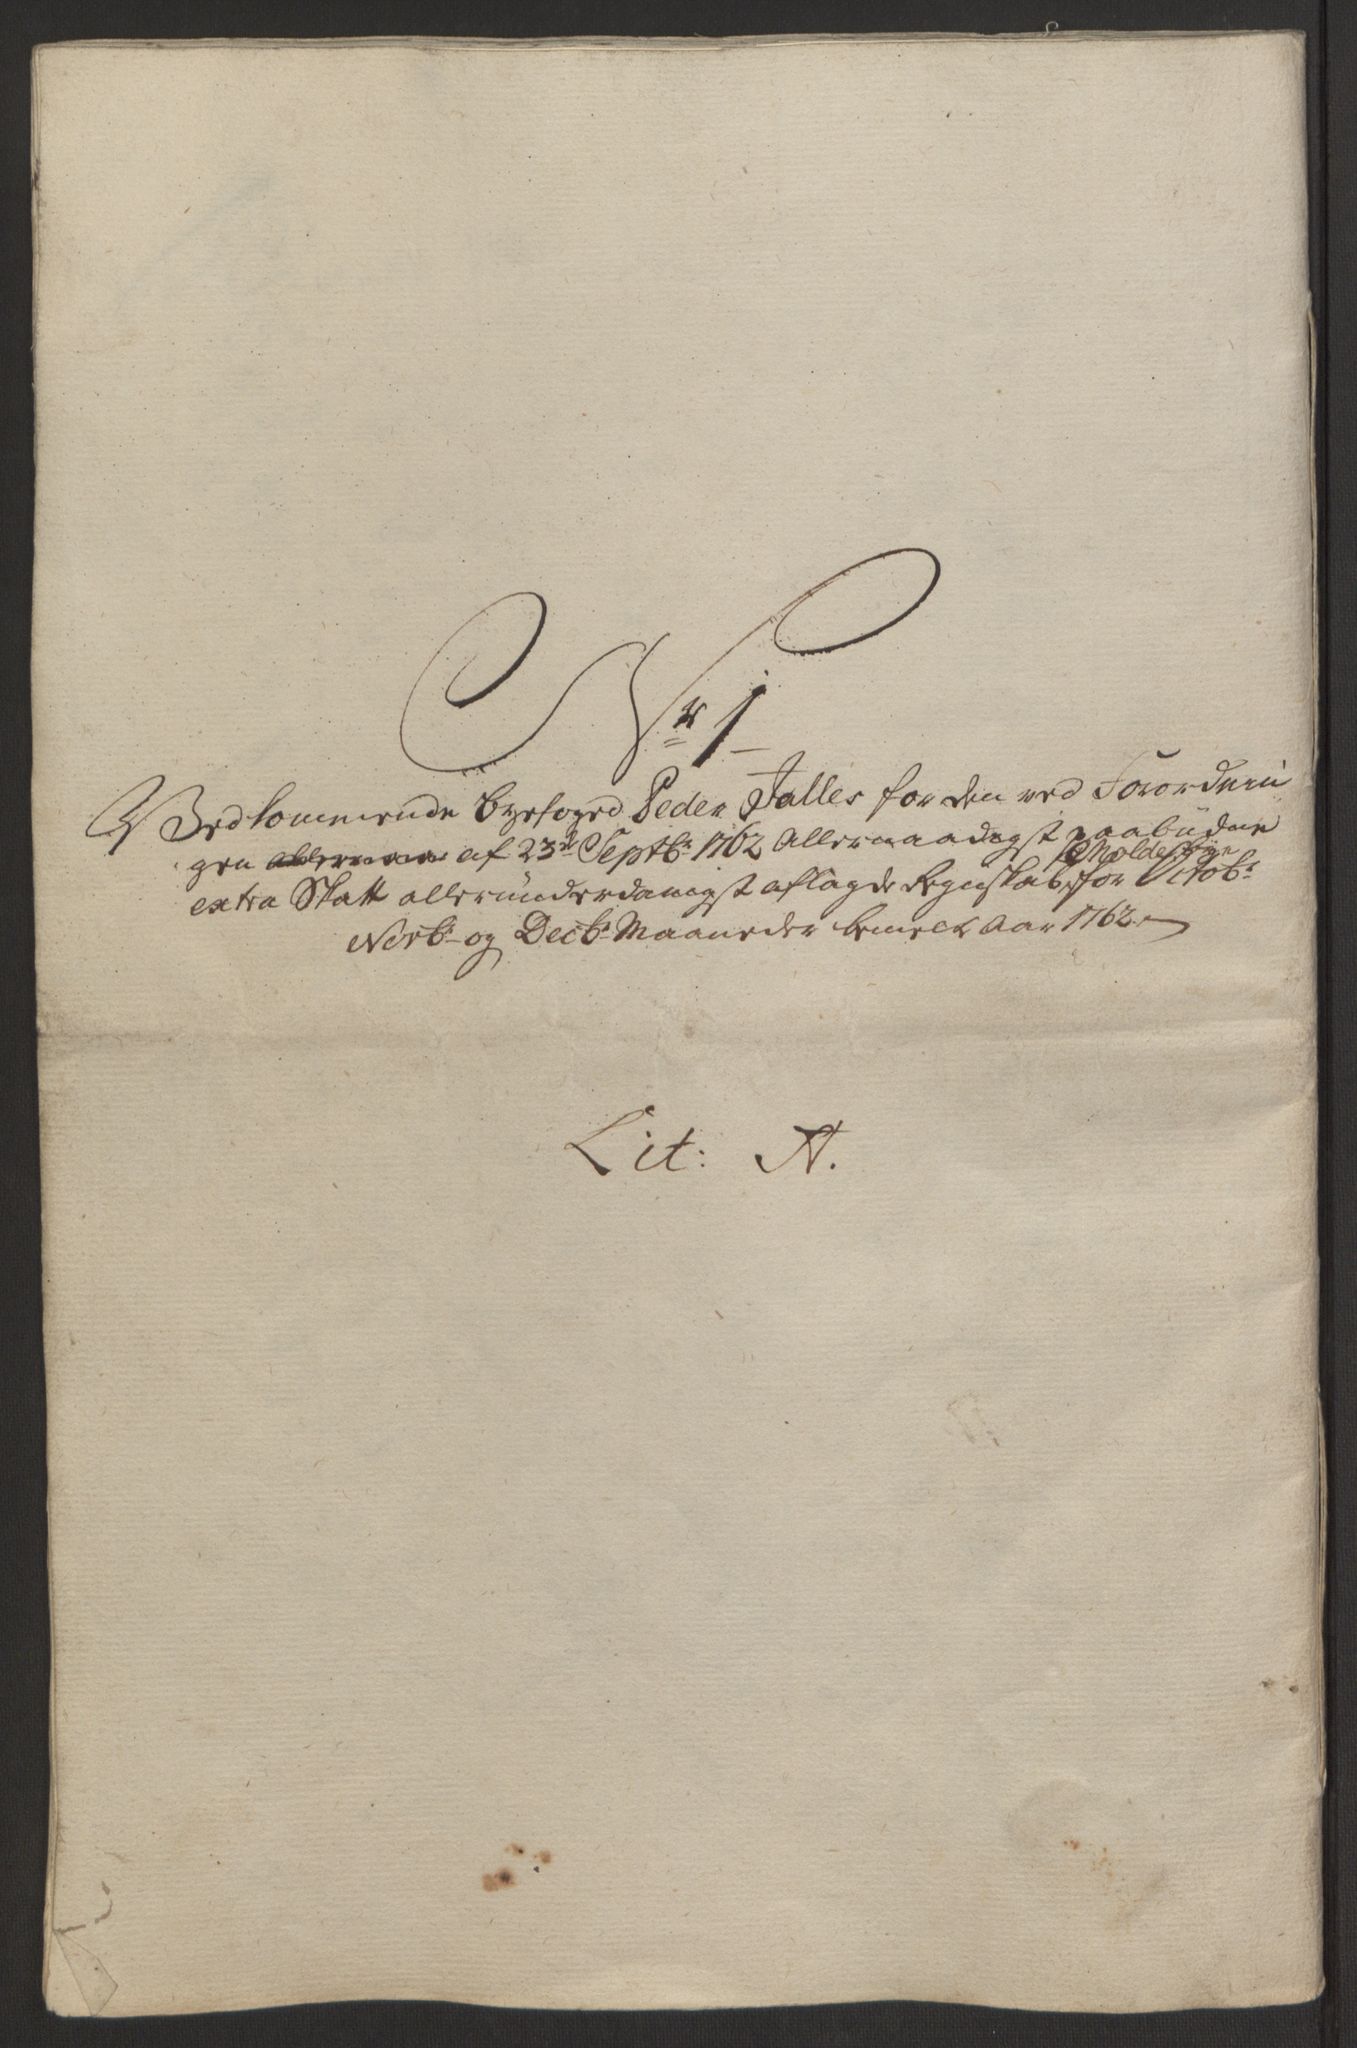 No 1
Vedkommende byefoged Peder Falles for den ved Forordnin
gen af 23de Septbr 1762 Allernaadigst paabudne
Molde Bye
extra Skatt allerunderdanigst aflagde Regnskab, for Octobr
Novbr og Decbr Maaneder bemelte Aar 1762
Lit: A.